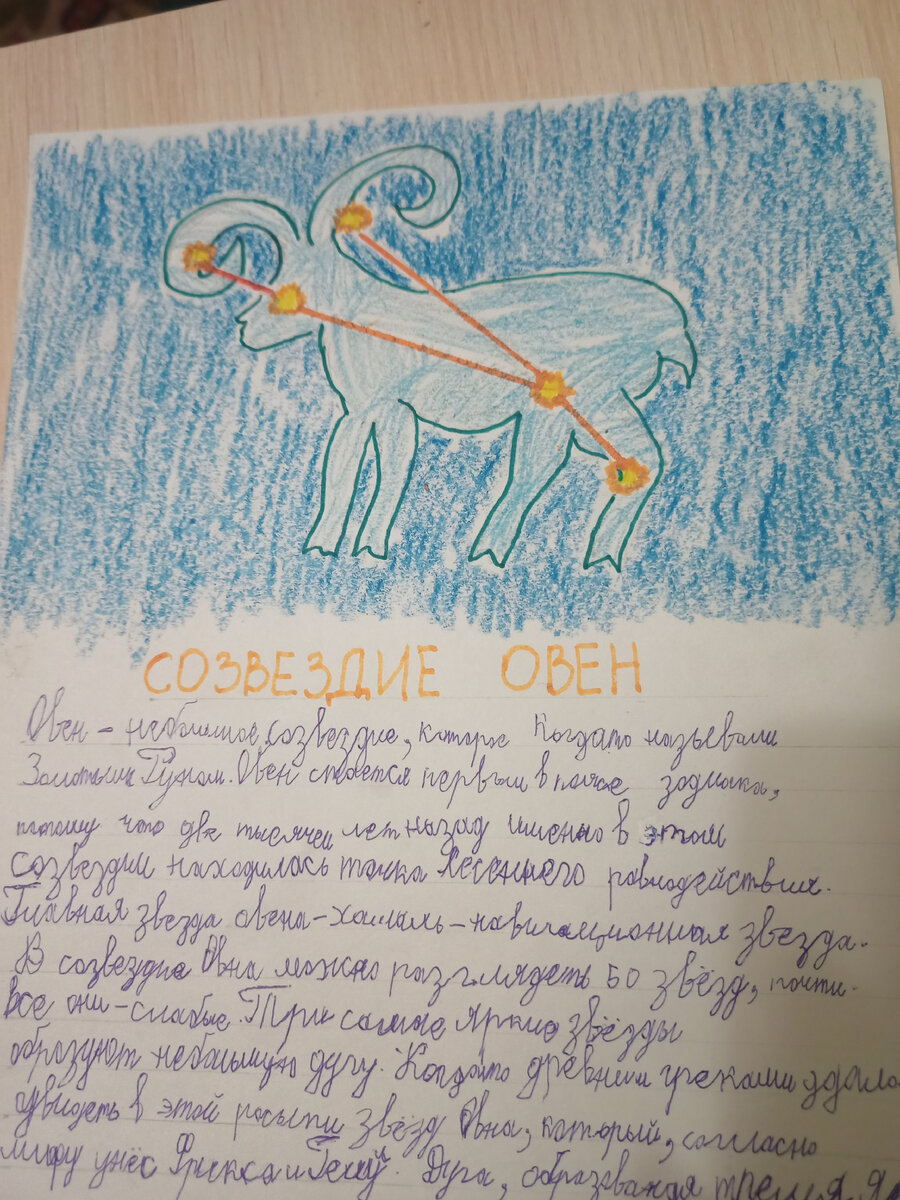 СОЗВЕЗДИЕ ОВЕН
Овен – небольшое созвездие, которое когдато назывели
Золотым Руном. Овен стается первым в поясе зодиака,
потому что две тысячи лет назад именно в этом
созвездии находилась точка весеннего равнодействия.
Главная звезда овена – хамаль – навигационная звезда.
В созвездие Овна можно разглядеть 50 звёзд, почти
все они – слабые. Три самые яркие звёзды
образуют небольшую дугу. Когдато древним греками удало
увидеть в этой россыпи звёзд Овна, который, согласно
мифу унёс Фрикса и Геллу. Дуга, образованая тремя